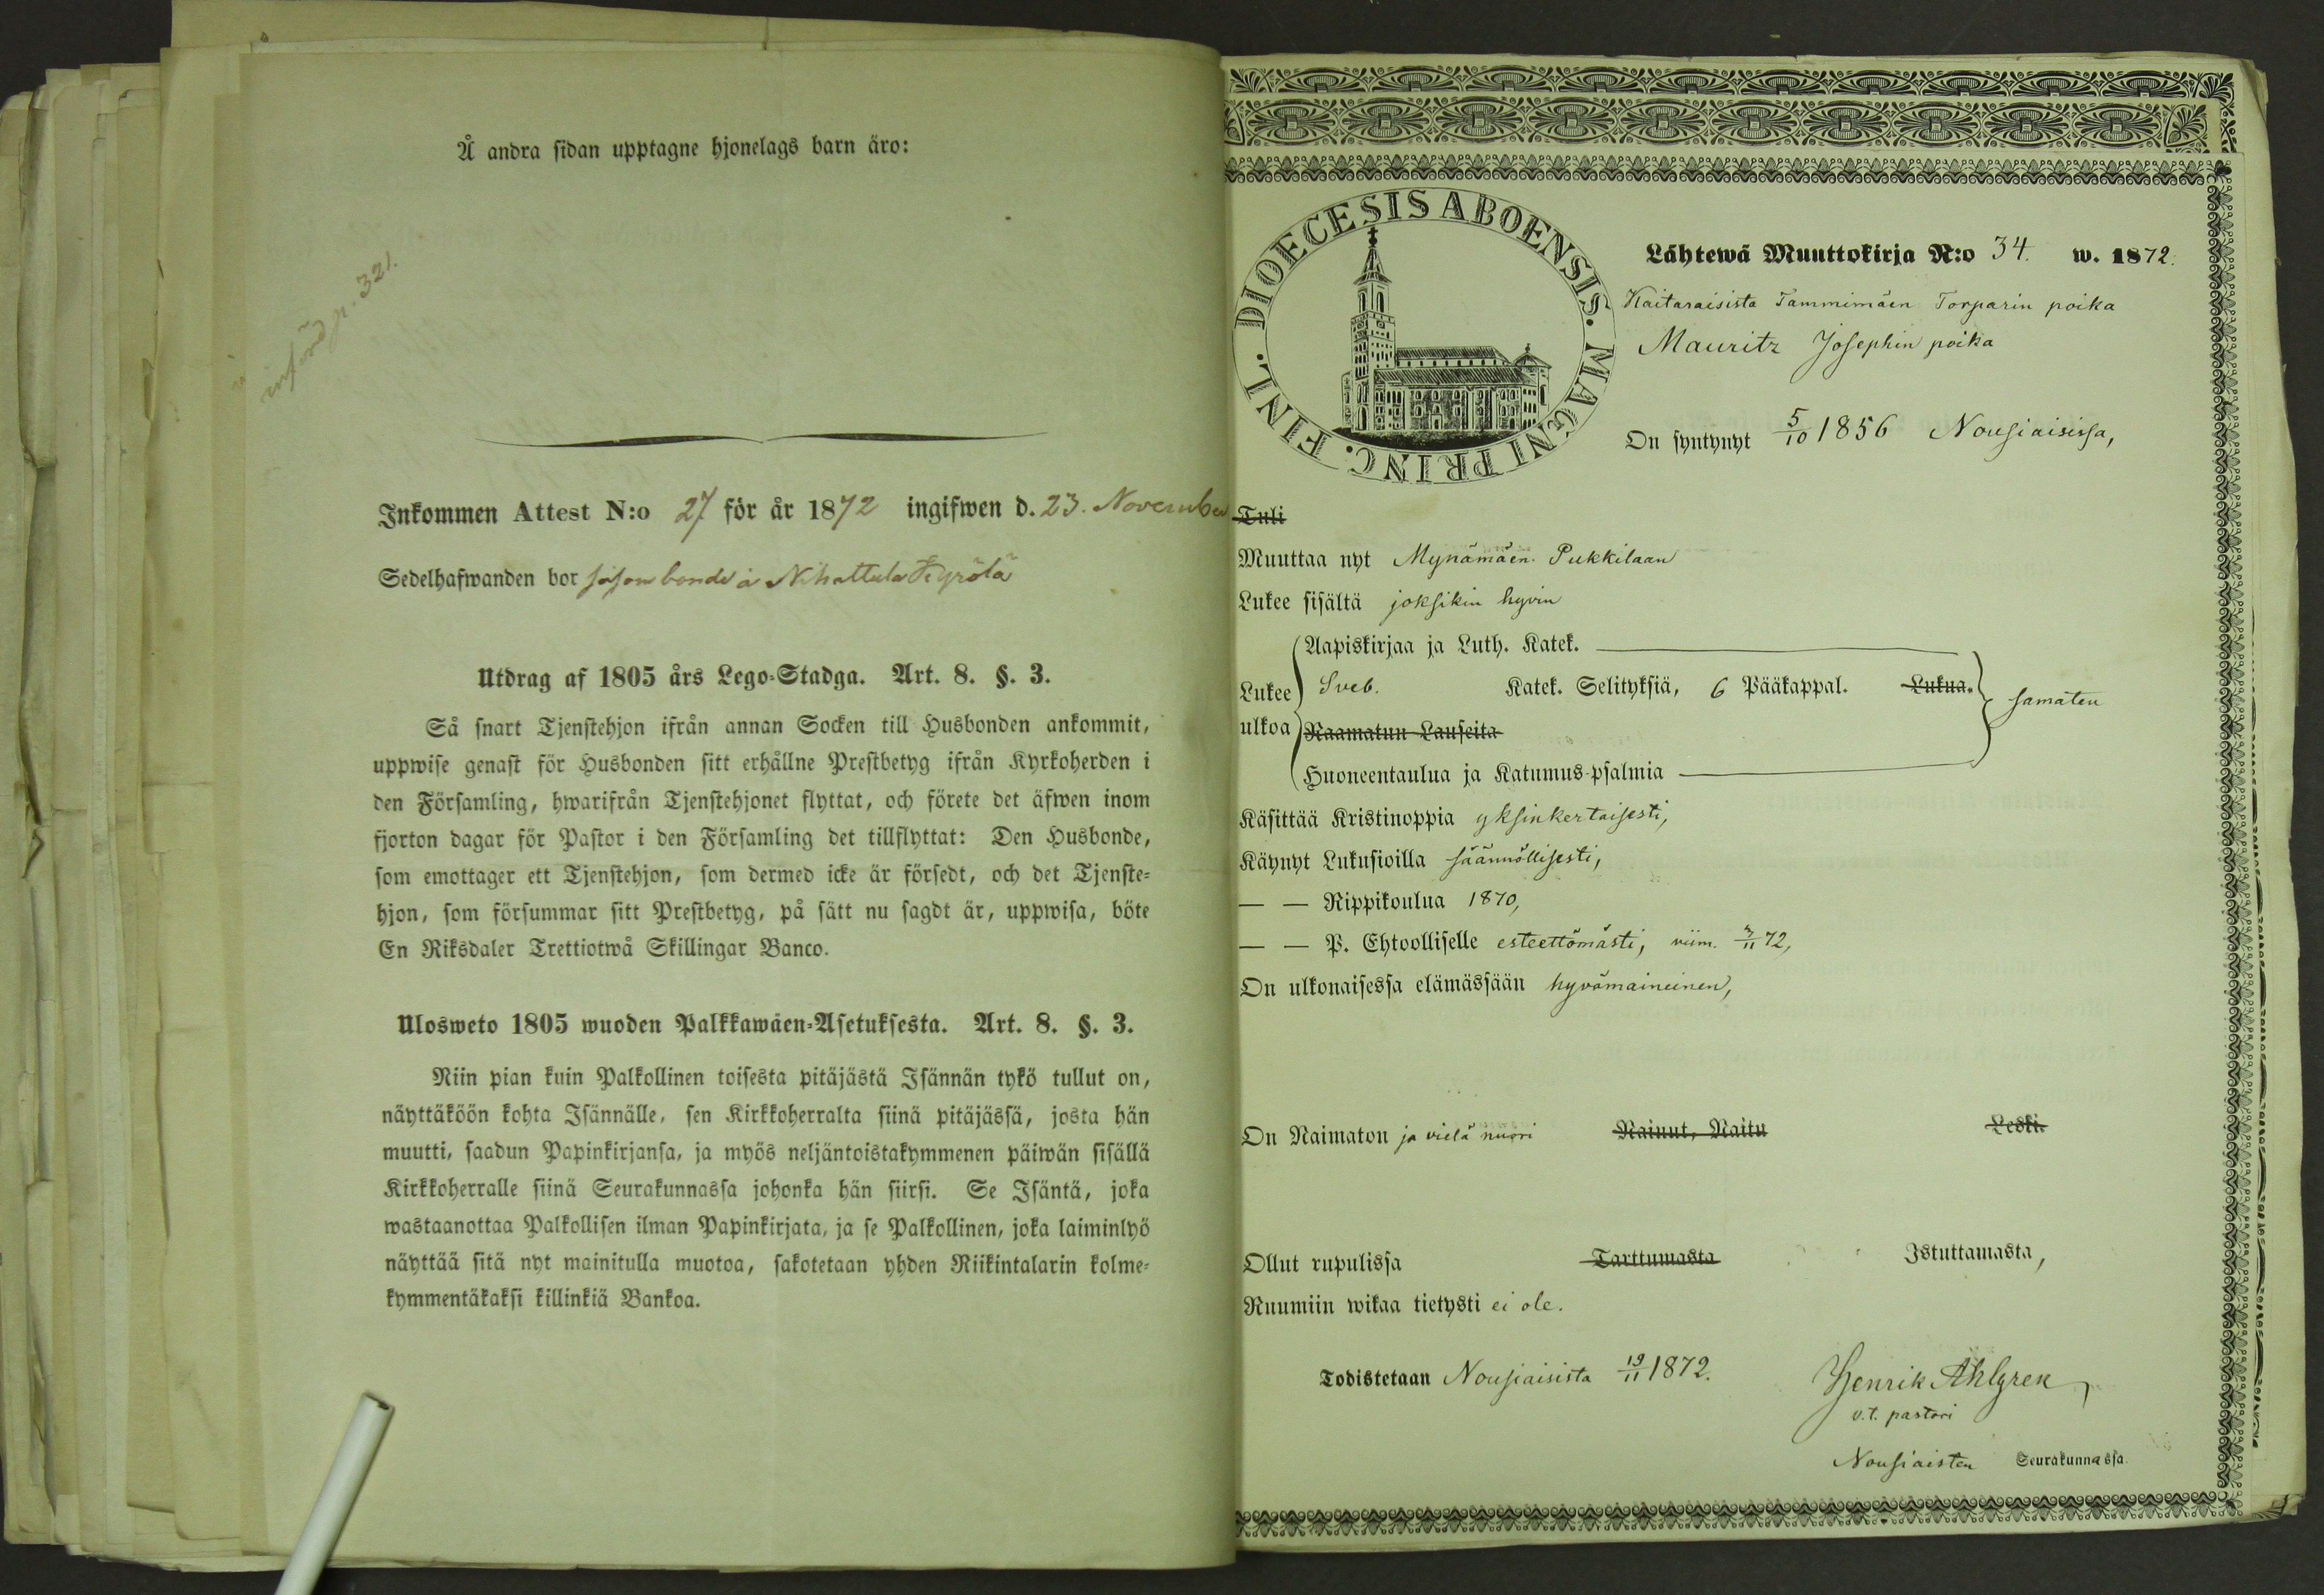 Å andra sidan upptagne hjonelags barn äro:
införd p. 321.
Inkommen Attest N:o 27 för år 1872 ingifwen d. 23. November
Sedelhafwanden bor såsom bonde å Nihattula Kyrölä
Utdrag af 1805 års Lego-Stadga. Art. 8. §. 3.
Så snart Tjenstehjon ifrån annan Socken till Husbonden ankommit,
uppwise genast för Husbonden sitt erhållne Prestbetyg ifrån Kyrkoherden i
den Församling, hwarifrån Tjenstehjonet flyttat, och förete det äfwen inom
fjorton dagar för Pastor i den Församling det tillflyttat: Den Husbonde,
som emottager ett Tjenstehjon, som dermed icke är försedt, och det Tjenste-
hjon, som försummar sitt Prestbetyg, på sätt nu sagdt är, uppwisa, böte
En Riksdaler Trettiotwå Skillingar Banco.
Ulosweto 1805 wuoden Palkkawäen-Asetuksesta. Art. 8. §. 3.
Niin pian kuin Palkollinen toisesta pitäjästä Isännän tykö tullut on,
näyttäköön kohta Isännälle, sen Kirkkoherralta siinä pitäjässä, josta hän
muutti, saadun Papinkirjansa, ja myös neljäntoistakymmenen päiwän sisällä
Kirkkoherralle siinä Seurakunnassa johonka hän siirsi. Se Isäntä, joka
wastaanottaa Palkollisen ilman Papinkirjata, ja se Palkollinen, joka laiminlyö
näyttää sitä nyt mainitulla muotoa, sakotetaan yhden Riikintalarin kolme-
kymmentäkaksi killinkiä Bankoa.
DIOECESIS ABOENSIS. MAGNI PRINC. FINL.
Lähtewä Muuttokirja N:o 34. w. 1872.
Kaitaraisista Tammimäen Torparin poika
Mauritz Josephin poika
On syntynyt 5/10 1856 Nousiaisissa,
Tuli
Muuttaa nyt Mynämäen Pukkilaan
Lukee sisältä joksikin hyvin
Aapiskirjaa ja Luth. Katek.
Lukee ulkoa Sveb. Katek. Selityksiä, 6 Pääkappal. Lukua. samaten
Raamatun Lauseita
Huoneentaulua ja Katumus-psalmia
Käsittää Kristinoppia yksinkertaisesti,
Käynyt Lukusioilla säännöllisesti,
— — Rippikoulua 1870,
— — P. Ehtoolliselle esteettömästi, viim. 3/11 72,
On ulkonaisessa elämässään hyvämaineinen,
On Naimaton ja vielä nuori Nainut, Naitu Leski.
Ollut rupulissa Tarttumasta Istuttamasta,
Ruumiin wikaa tietysti ei ole.
Todistetaan Nousiaisista 19/11 1872. Henrik Ahlgren
v.t. pastori
Nousiaisten Seurakunnassa.